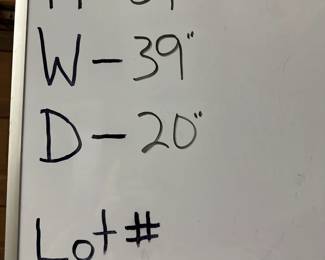 W - 39"
D - 20"
Lot #